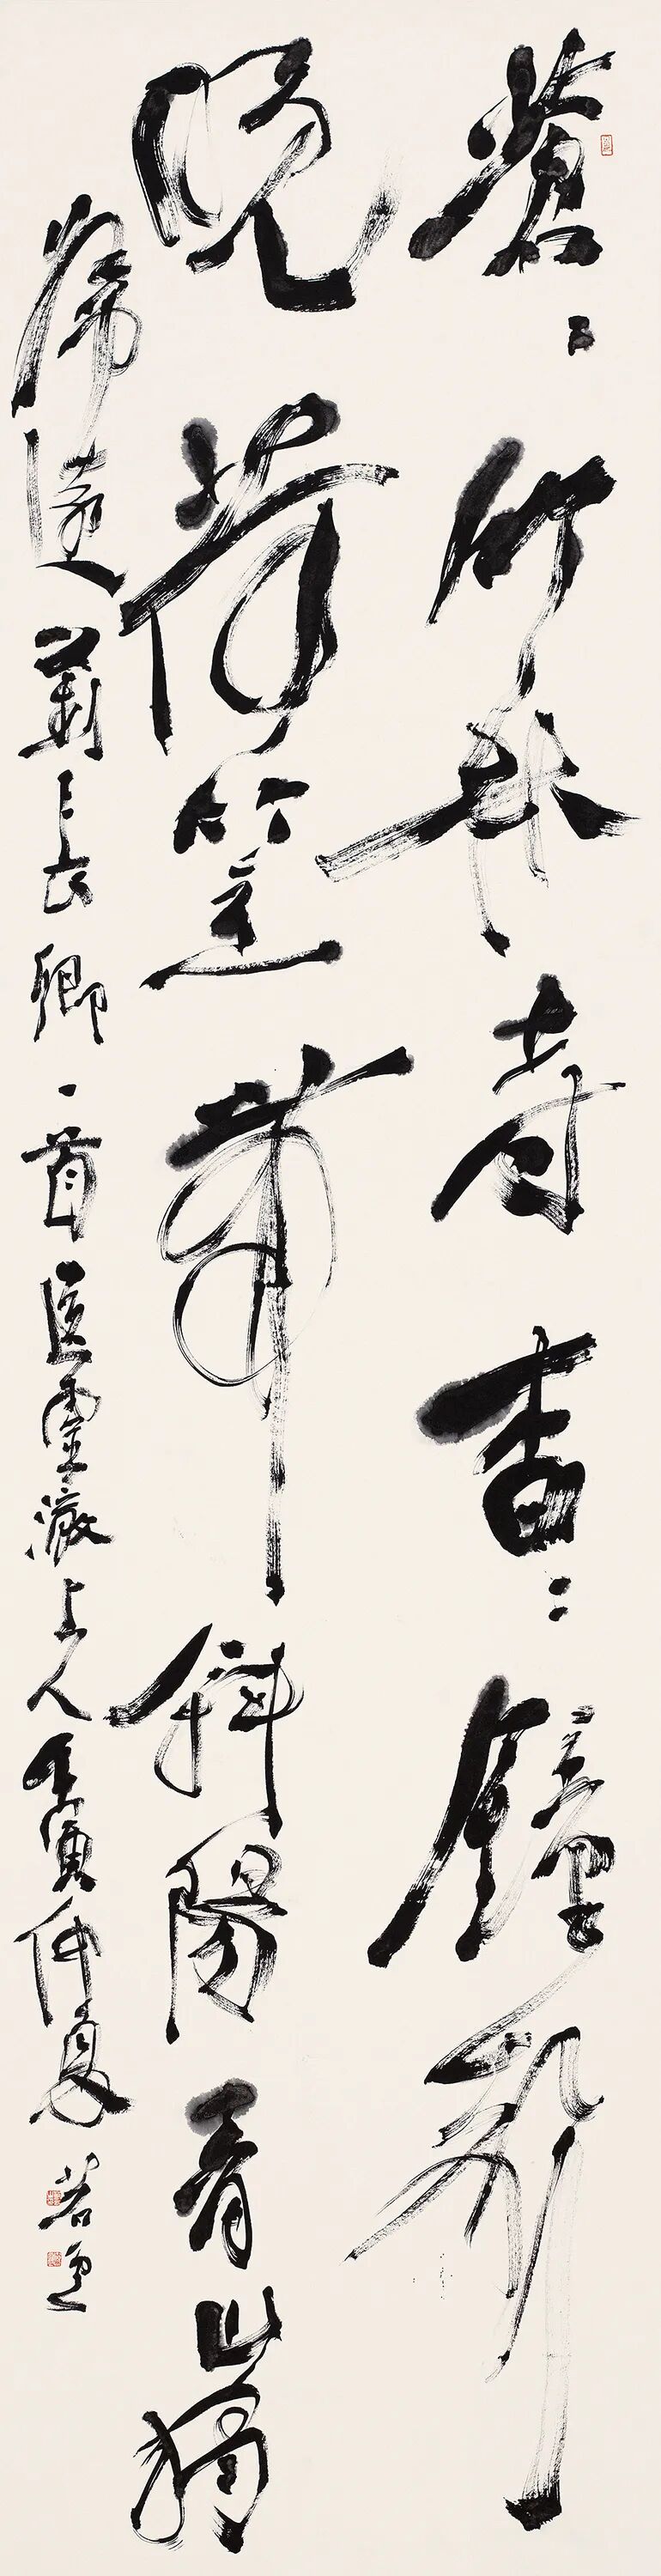 蒼〻竹林寺杳〻鐘聲
晚荷笠帶斜陽青山獨
歸遠 劉長卿一首送靈澈上人壬寅仲夏 若